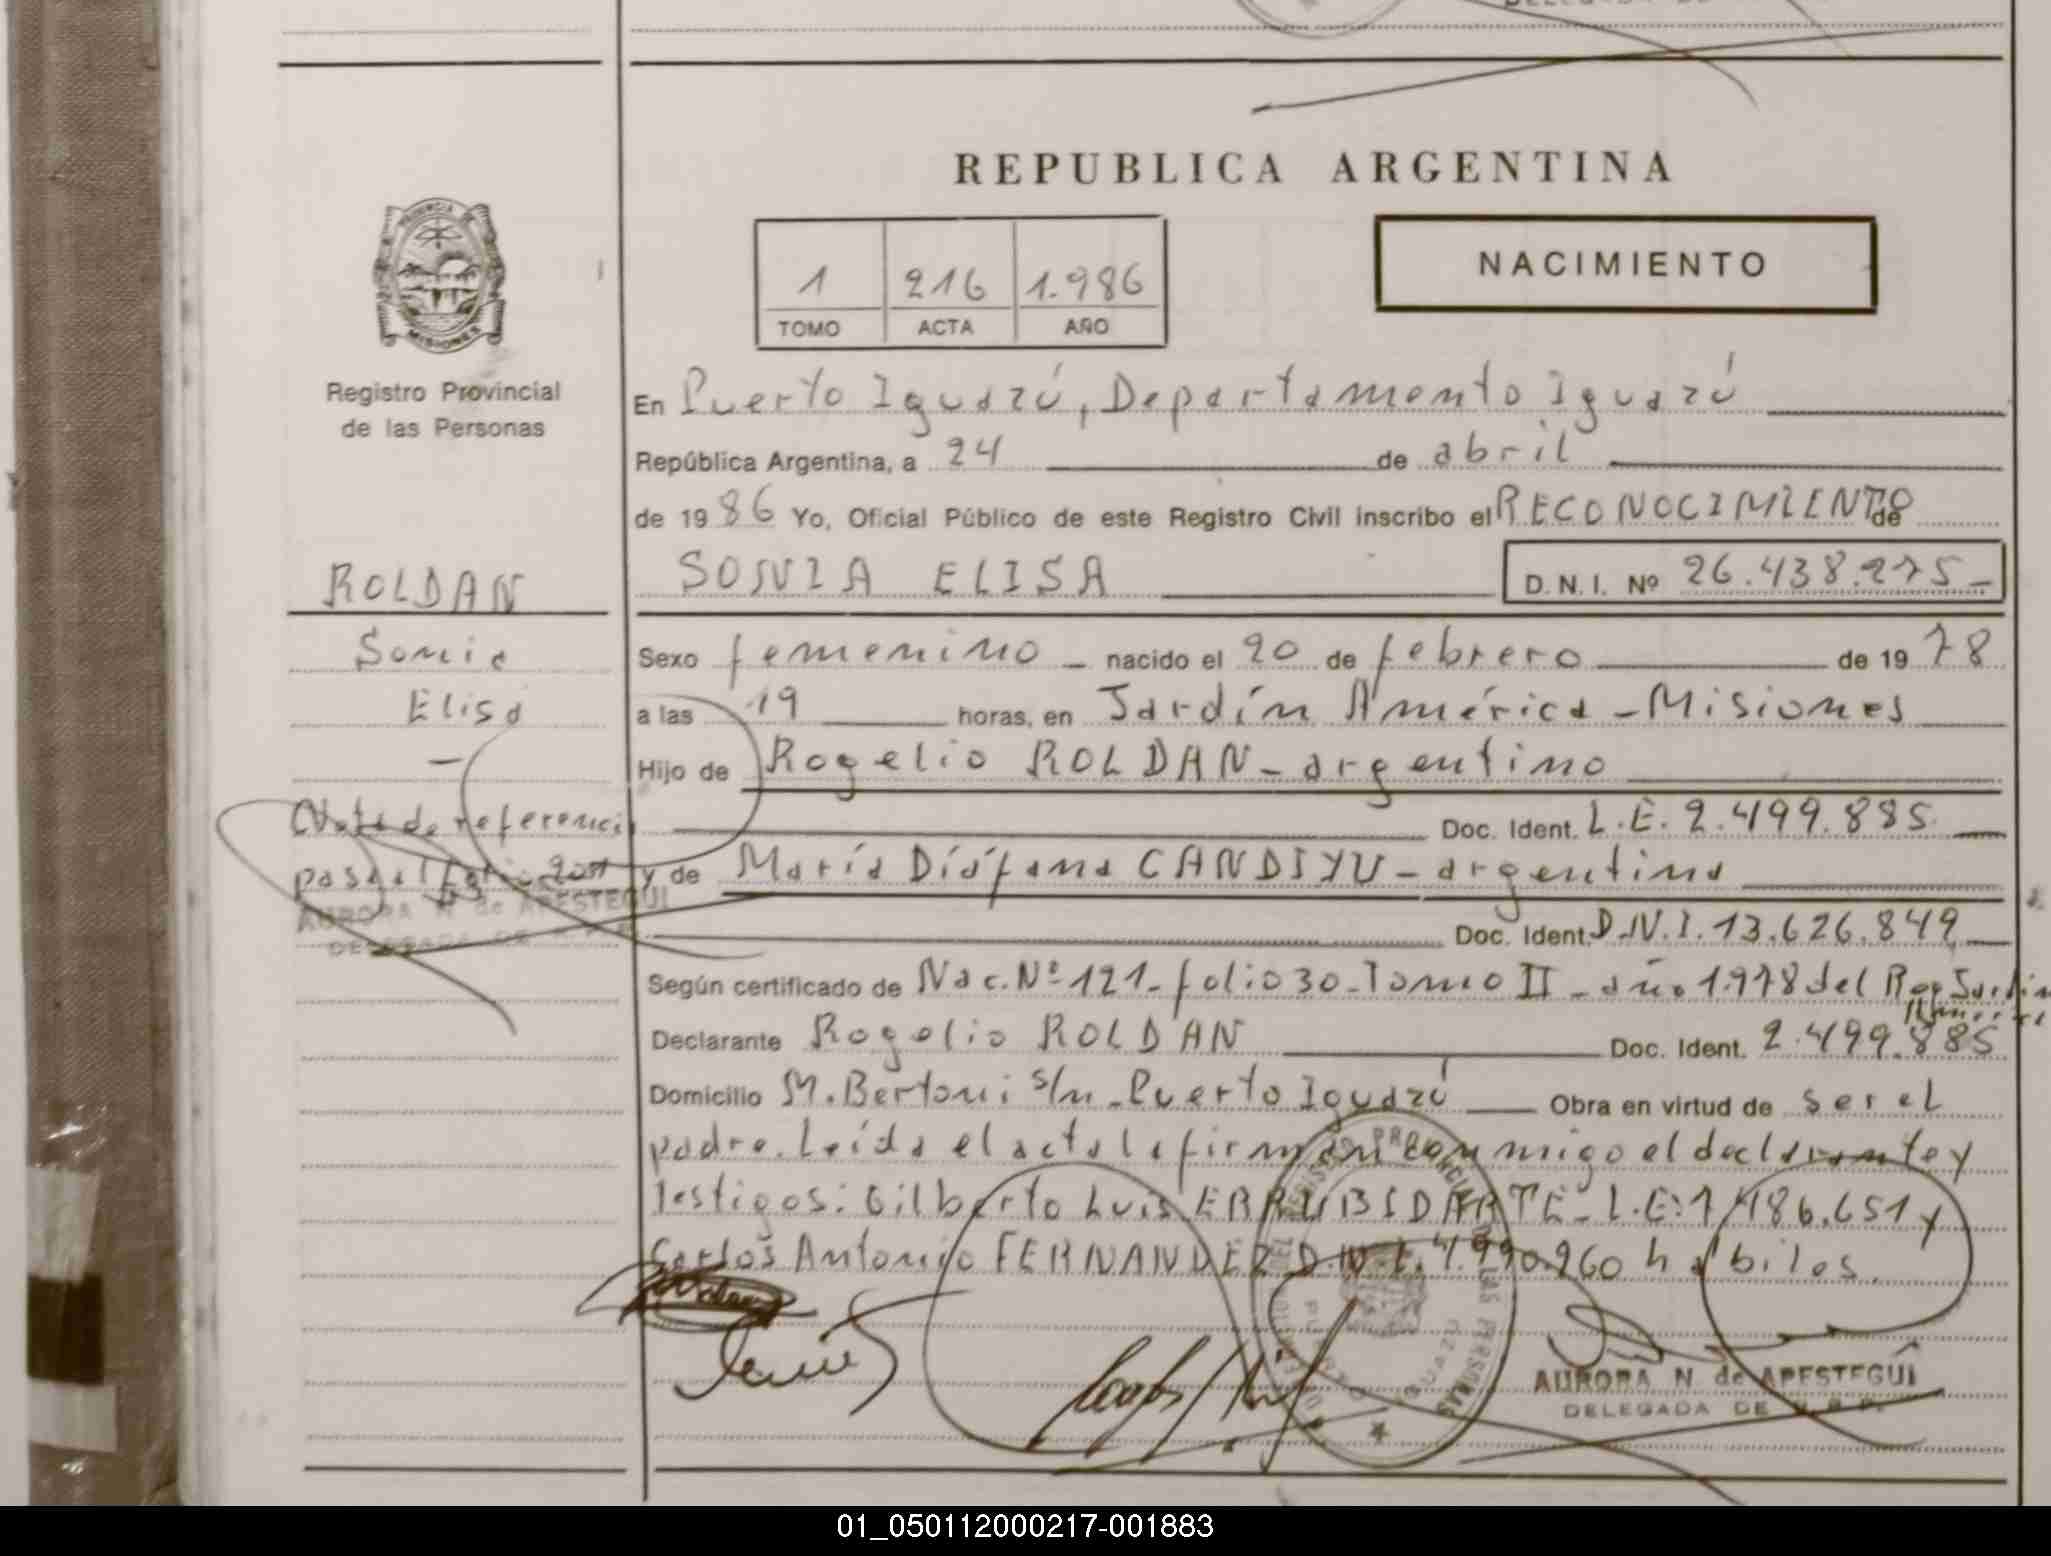 REPUBLICA ARGENTINA
PROVINCIA DE
MISIONES
Registro Provincial
de las Personas
1 216 1.986
TOMO ACTA AÑO
NACIMIENTO
En Puerto Iguazú, Departamento Iguazú
República Argentina, a 24 de abril
de 1986 Yo, Oficial Público de este Registro Civil inscribo el RECONOCIMIENTO de
ROLDAN
SONIA ELISA D.N.I. Nº 26.438.275
Sonia
Elisa
Sexo femenino nacido el 20 de febrero de 1978
a las 19 horas, en Jardín América - Misiones
Hijo de Rogelio ROLDAN - argentino
Doc. Ident. L.E. 2.499.885
y de María Diáfana CANDIYU - argentina
Doc. Ident. D.N.I. 13.626.849
Nota de referencia
pasa al folio
AURORA N de APESTEGUI
DELEGADA DE
Según certificado de Nac. Nº 121 - folio 30 - Tomo II - año 1.978 del Reg. Jardín
América
Declarante Rogelio ROLDAN Doc. Ident. 2.499.885
Domicilio M. Bertoni s/n - Puerto Iguazú Obra en virtud de ser el
padre. Leída el acta la firman conmigo el declarante y
Testigos: Gilberto Luis ERRUBIDARTE - L.E: 7.486.651 y
Carlos Antonio FERNANDEZ D.N.I. 4.990.960 hábiles.
AURORA N de APESTEGUI
DELEGADA DE
01_050112000217-001883